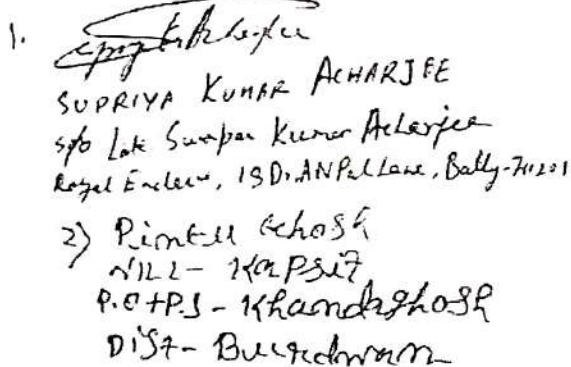 1.
SUPRIYA KUMAR ACHARJEE
S/o Late Kumar Acharjee
Royal Enclave, 15 Dr. AN Pal Lane, Bally-711201
2) Pintu Ghosh
VILL- Kapsit
P.O+P.S - Khandaghosh
DIST- Burdwan